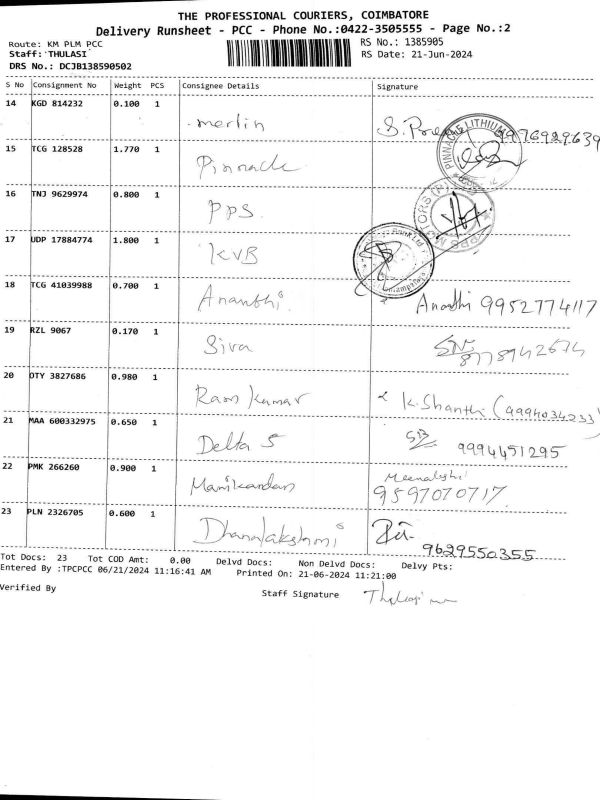 THE PROFESSIONAL COURIERS, COIMBATORE
Delivery Runsheet - PCC - Phone No.:0422-3505555 - Page No.:2
Route: KM PLM PCC
RS No.: 1385905
Staff: THULASI
RS Date: 21-Jun-2024
DRS No.: DCJB138590502
S No Consignment No Weight PCS Consignee Details Signature
14 KGD 814232 0.100 1 merlin 9976929639
15 TCG 128528 1.770 1 Pinnacle PINNACLE LITHIUM
16 TNJ 9629974 0.800 1 PPS MOTORS
17 UDP 17884774 1.800 1 KVB
18 TCG 41039988 0.700 1 Ananthi Ananthi 9952774117
19 RZL 9067 0.170 1 Siva 8778942674
20 OTY 3827686 0.980 1 Ram kumar K. Shanthi (9994034233)
21 MAA 600332975 0.650 1 Delta 5 9994451295
22 PMK 266260 0.900 1 Manikandan 9597070717
23 PLN 2326705 0.600 1 Dhanalakshmi 9629550355
Tot Docs: 23 Tot COD Amt: 0.00 Delvd Docs: Non Delvd Docs: Delvy Pts:
Entered By :TPCPCC 06/21/2024 11:16:41 AM Printed On: 21-06-2024 11:21:00
Verified By Staff Signature Thulasi